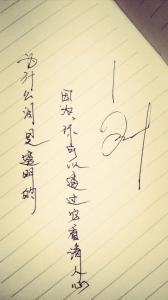 为什么泪是透明的
因为，你可以透过它看清人心